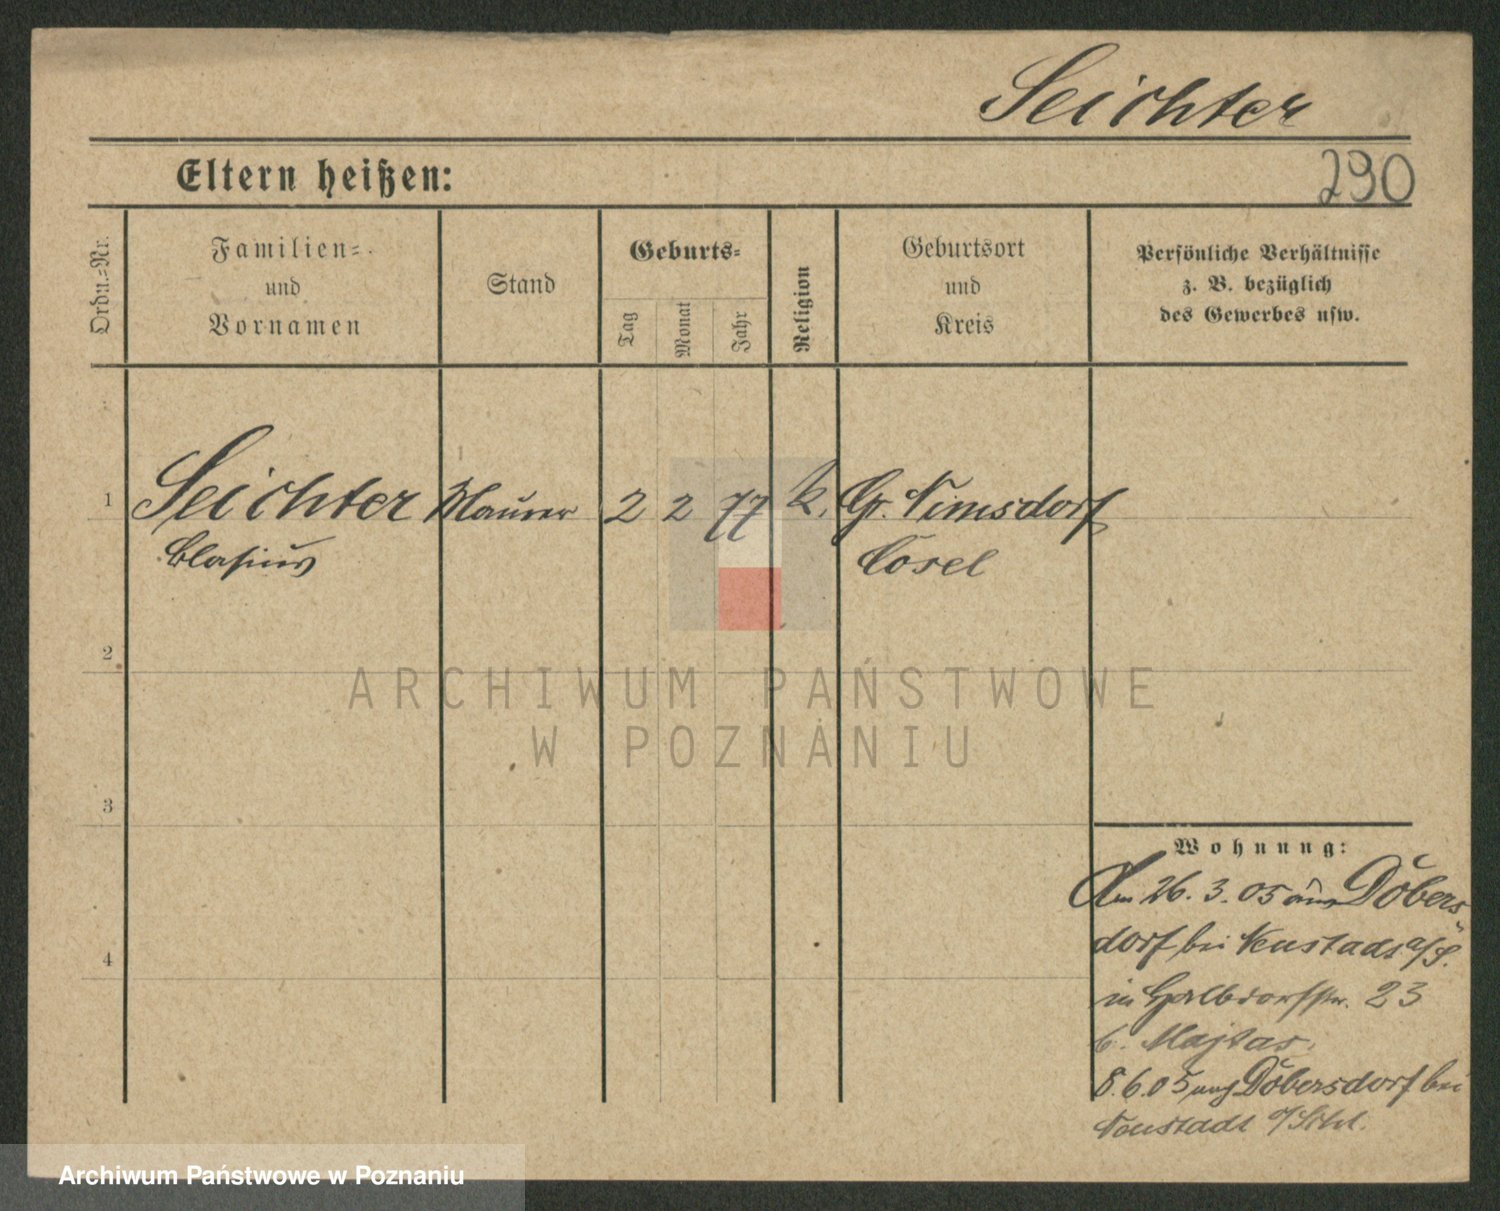 Seichter
Eltern heißen:
290
Ordn.=Nr.
Familien=
und
Vornamen
Stand
Geburts=
Tag
Monat
Jahr
Religion
Geburtsort
und
Kreis
Persönliche Verhältnisse
z. B. bezüglich
des Gewerbes usw.
1
Seichter Maurer 2 2 77 k. Gr. Nimsdorf
Blasius Cosel
2
ARCHIWUM PAŃSTWOWE
W POZNANIU
3
Wohnung:
Am 26. 3. 05 aus Döbers
dorf bei Neustadt o/S.
4
in Halbdorfstr. 23
b. Majtas.
8.6.05 nach Döbersdorf bei
Neustadt o/Schl.
Archiwum Państwowe w Poznaniu